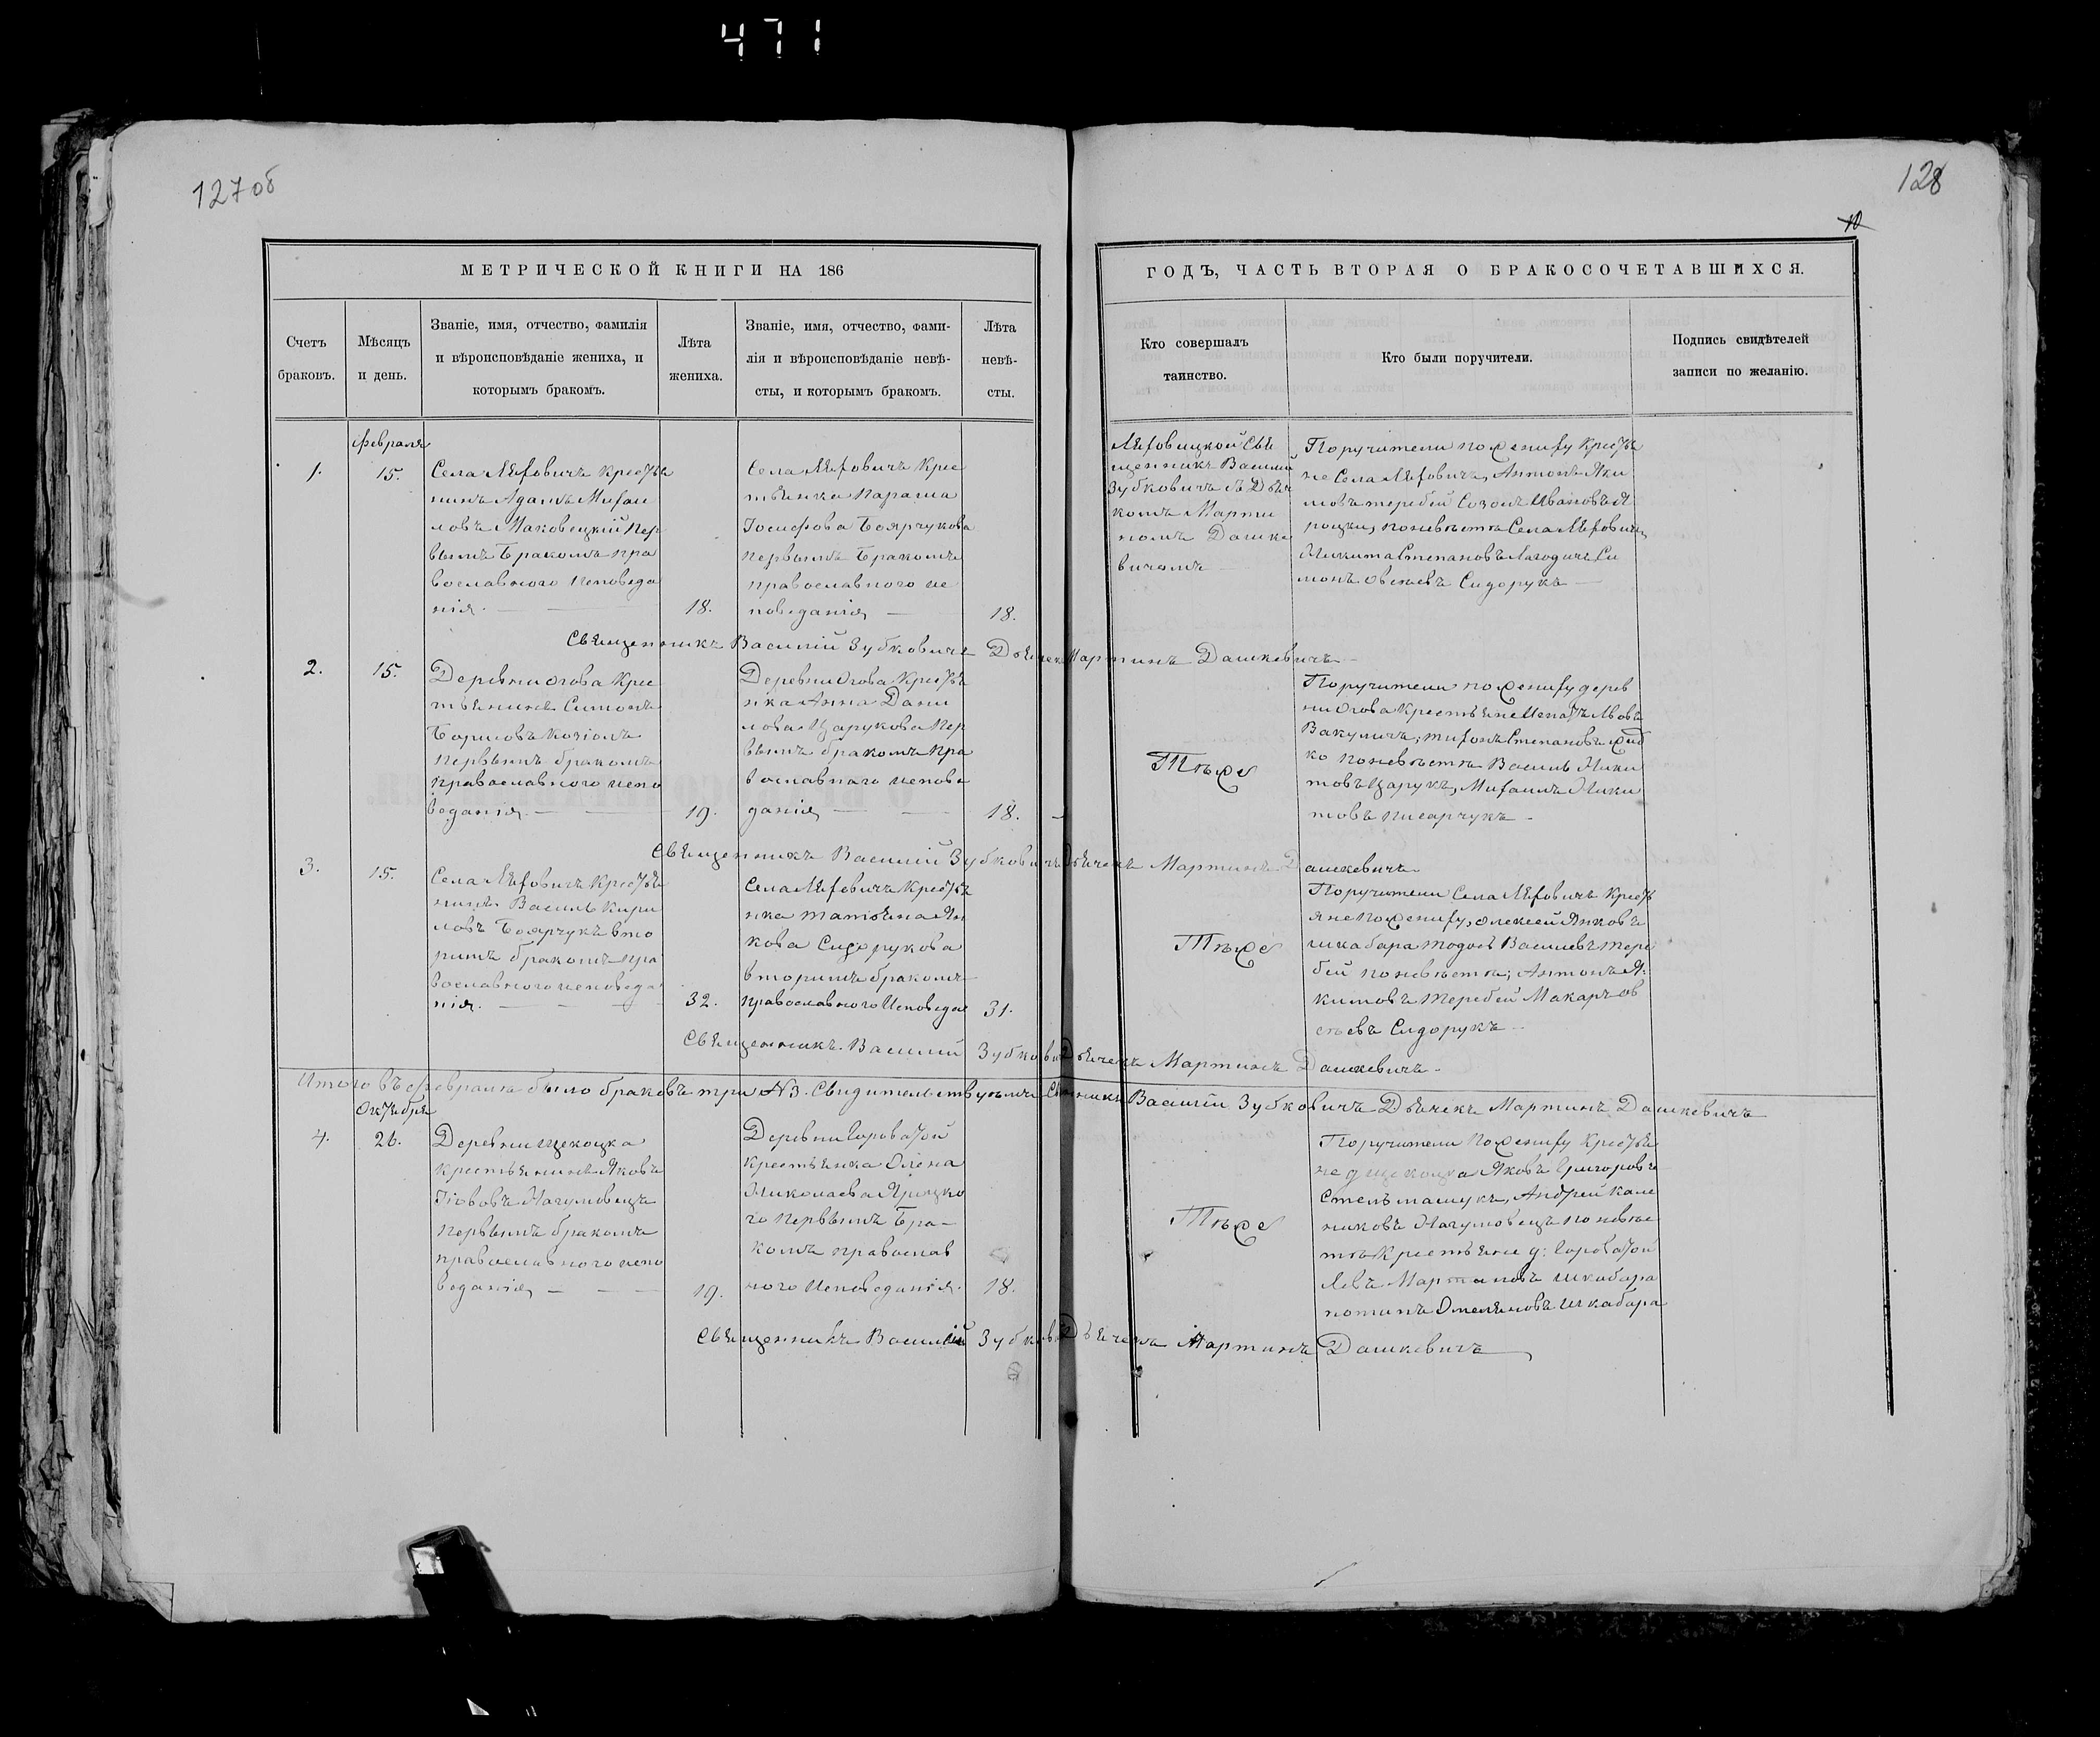 471
127об
128
10
МЕТРИЧЕСКОЙ КНИГИ НА 186
ГОДЪ, ЧАСТЬ ВТОРАЯ О БРАКОСОЧЕТАВШИХСЯ.
Счетъ
браковъ.
Мѣсяцъ
и день.
Званіе, имя, отчество, фамилія
и вѣроисповѣданіе жениха, и
которымъ бракомъ.
Лѣта
жениха.
Званіе, имя, отчество, фами-
лія и вѣроисповѣданіе невѣ-
сты, и которымъ бракомъ.
Лѣта
невѣ-
сты.
Кто совершалъ
таинство.
Кто были поручители.
Подпись свидѣтелей
записи по желанію.
Февраля
1.
15.
Села Ляховичъ Кресть
нинъ Адамъ Михаи
ловъ Маковецкій Пер
вымъ Бракомъ пра
вославного Исповеда
нія.
18.
Села Ляховичъ Крес
тьянка Параша
Іосифова Боярчукова
первымъ Бракомъ
православного ис
поведанія
18.
Ляховицкой Свя
щенникъ Василій
Зубковичъ съ Дьяч
комъ Марти
номъ Дашке
вичомъ
Поручители по жениху Крестья
не Села Ляховичъ, Антонъ Яки
мовъ теребей Созонъ Ивановъ Я
роцкій, по невѣсте Села Ляховичъ
Никита Степановъ Си
монъ Овсѣевъ Сидорукъ
Священникъ Василій Зубковичъ Дьячекъ Мартинъ Дашкевичъ
2.
15.
Деревни Огова Крес
тьянинъ Симонъ
Борисовъ Козіолъ
первымъ бракомъ
православного испо
веданія.
19.
Деревни Огова Кресть
нка Анна Дани
лова Царукова Пер
вымъ бракомъ пра
вославнаго испове
данія
18.
Тѣже
Поручители по жениху дерев
ни Огова Крестьяне Львовъ
Вакуличъ, тихонъ Степановъ
ко по невѣсте Василь Ники
товъ Царукъ, Михаилъ Ники
товъ писарчукъ
Священникъ Василій Зубковичъ Дьячекъ Мартинъ Дашкевичъ
3.
15.
Села Ляховичъ Крестья
нинъ Василь Кири
ловъ Боярчукъ вто
римъ бракомъ пра
вославного исповеда
нія.
32.
Села Ляховичъ Крестья
нка татьяна Ян
кова Сидорукова
вторимъ бракомъ
православного Исповедан
31.
Тѣже
Поручители Села Ляховичъ Кресть
яне По жениху, Олексей Янковъ
шкабара тодосъ Василевъ тере
бей по невѣсте; Антонъ Я
кимовъ теребей Макаръ ов
сѣевъ Сидорукъ
Священникъ Василій Зубкович Дьячекъ Мартинъ Дашкевичъ
Итого въ февралѣ было браковъ три N3. Свидительствуемъ Священикъ Василій Зубковичъ Дьячекъ Мартинъ Дашкевичъ
Октября
4.
26.
Деревни Щекоцка
крестьянинъ Яковъ
Іововъ Нагумовецъ
первымъ бракомъ
православного испо
веданія
19.
Деревни Гороватой
крестьянка Олена
Николаева Ярицко
го первымъ Бра-
комъ православ
ного Исповеданія.
18.
Тѣже
Поручители По жениху Крестья
не д щекоцка Яковъ Григоровъ
Стельмашукъ, Андрей Кале
никовъ Нагумовецъ по невѣс
те Крестьяне д: Гороватой
Левъ Мартиновъ шкабара
потапъ Омеляновъ шкабара
Священникъ Василій Зубкович Дьячекъ Мартинъ Дашкевичъ